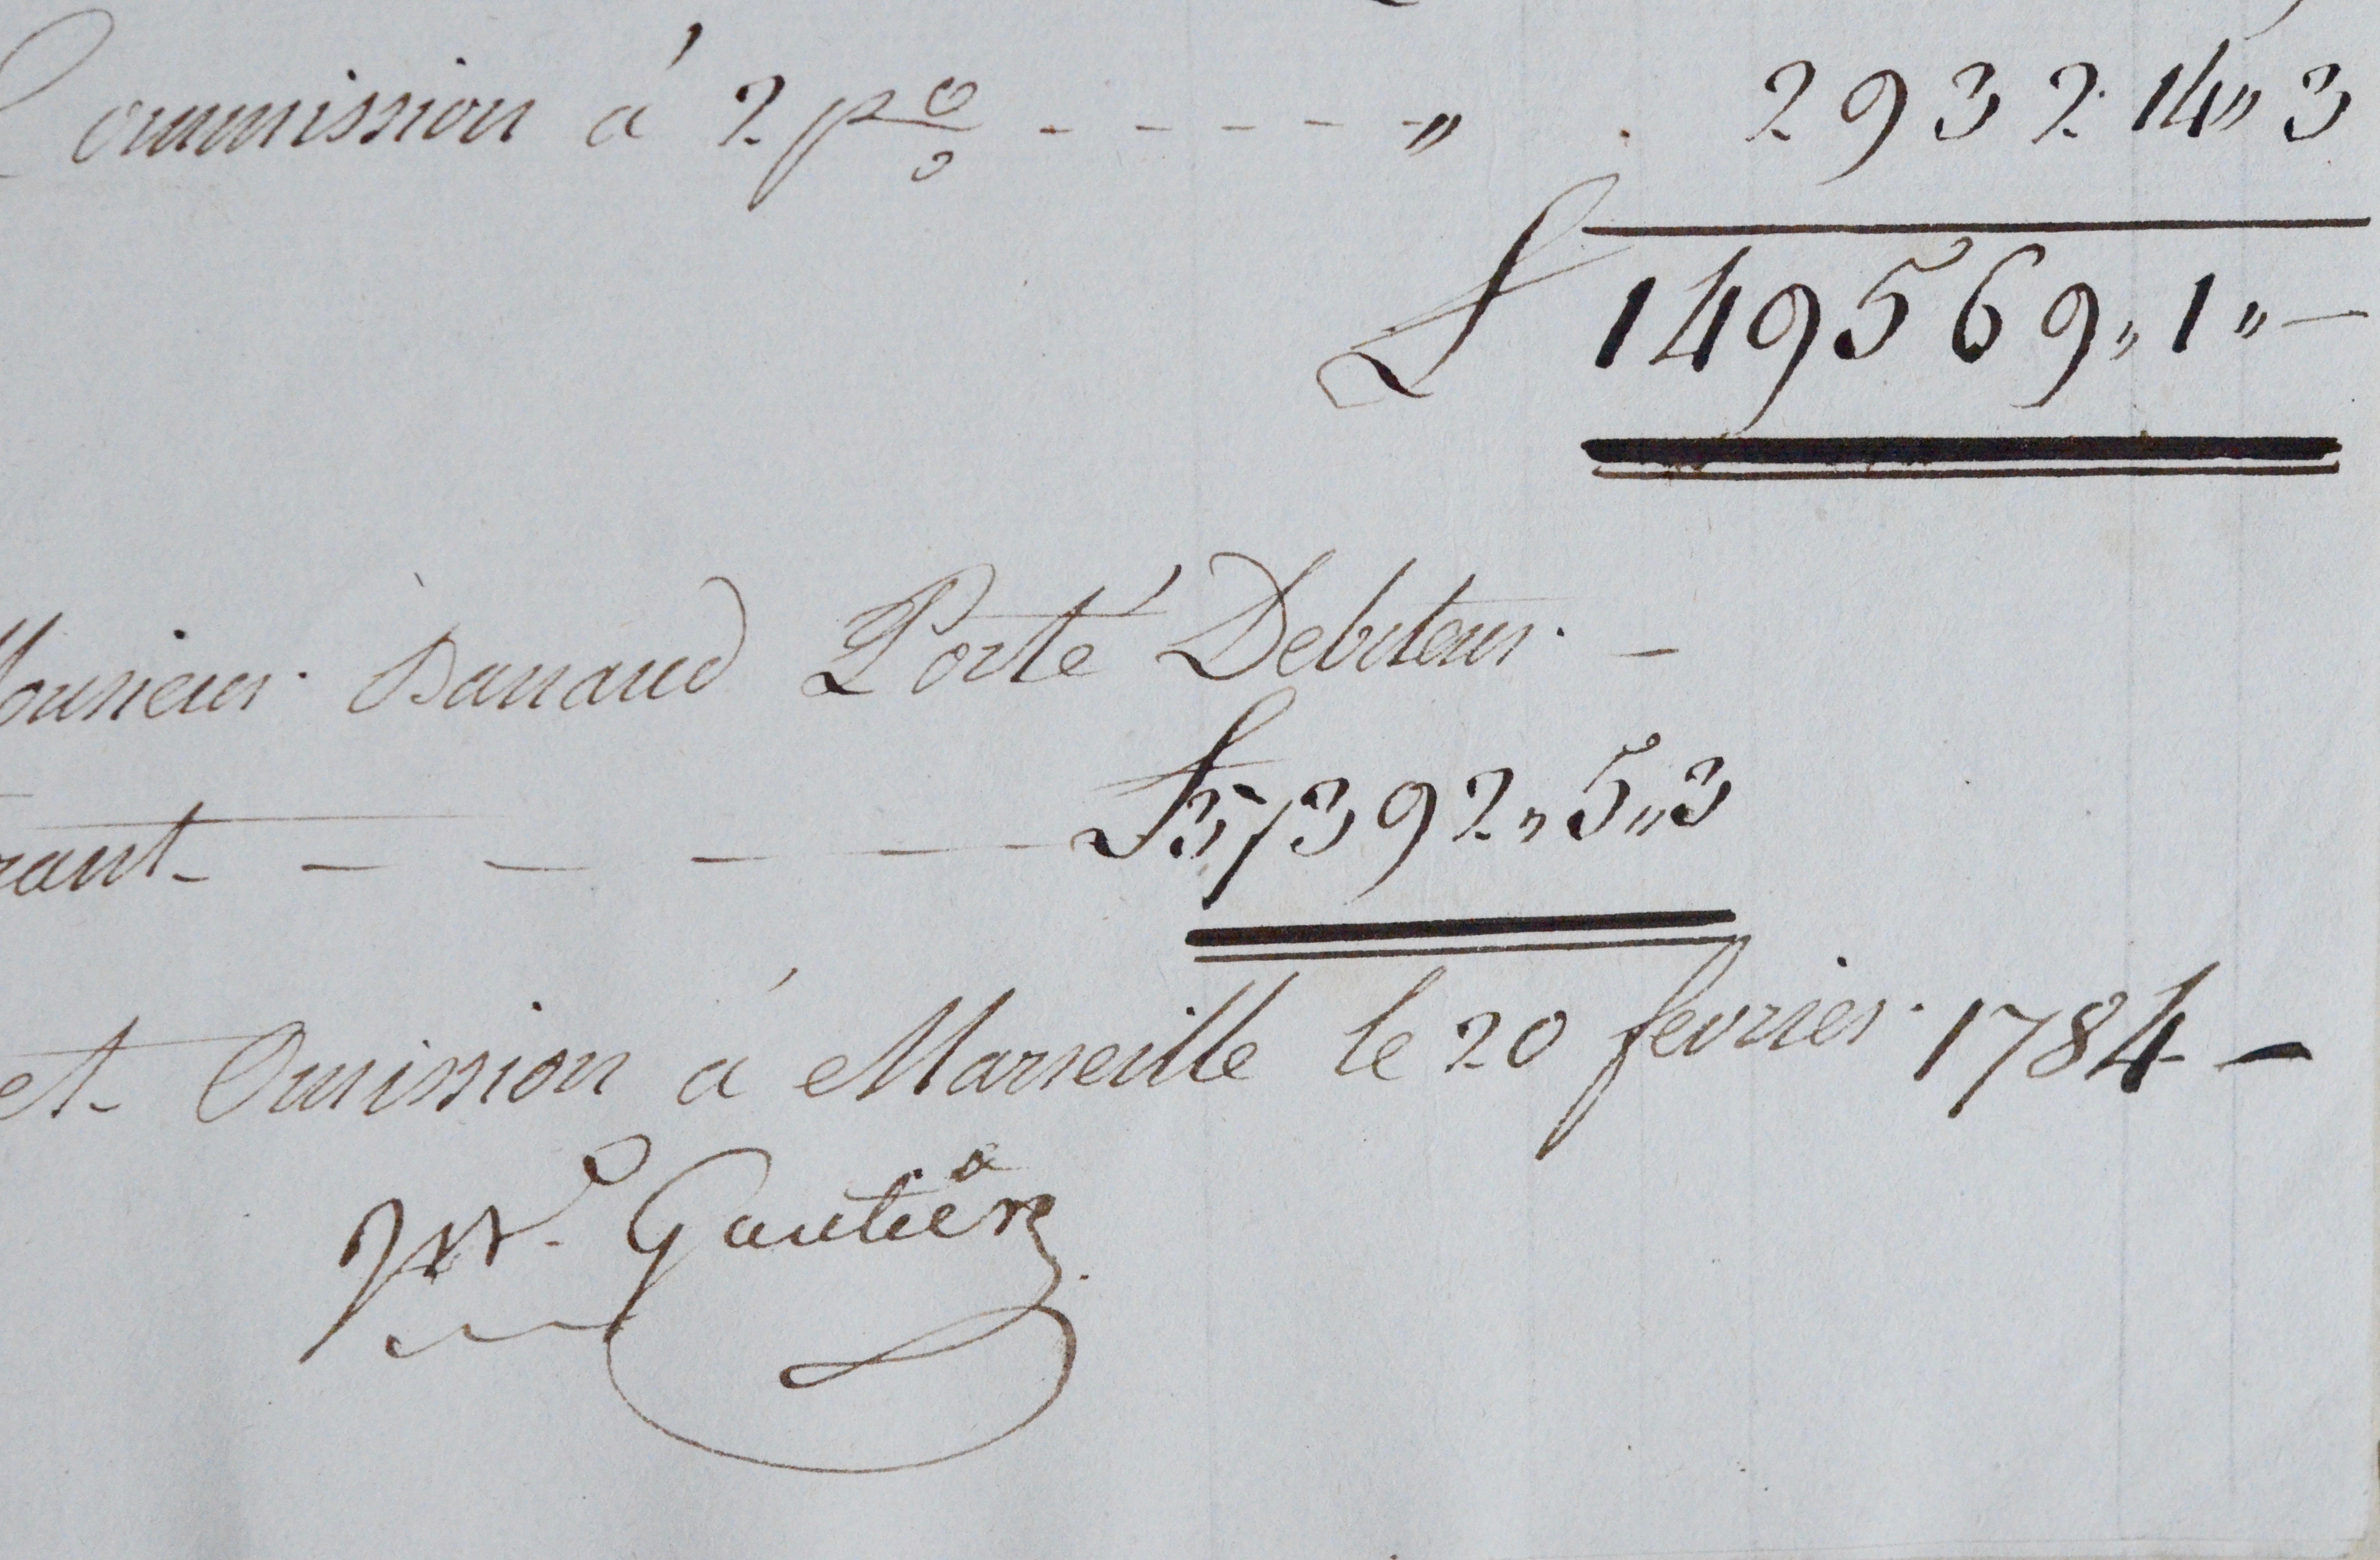 Commission à 2 p% - - - - - " 2932 14 " 3
£ 149569 " 1 " —
Monsieur Barraud Porté Debiteur. —
rant - — — — — £ 37392 " 5 " 3
et Omission à Marseille le 20 fevrier 1784 —
Gautier